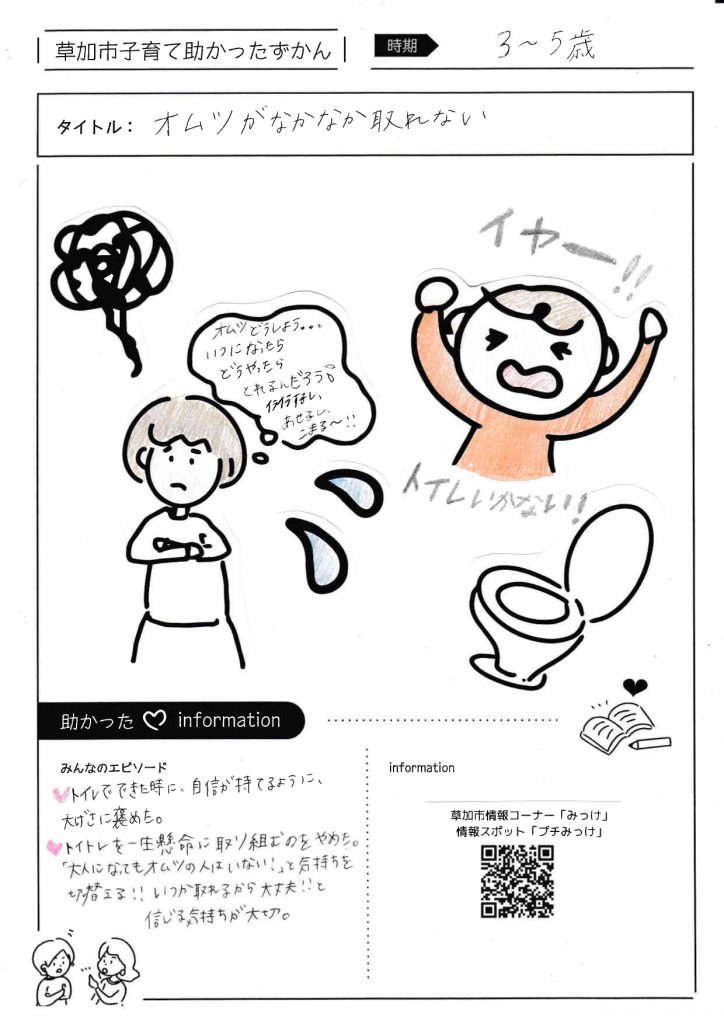 草加市子育て助かったずかん
時期
3～5歳
タイトル： オムツがなかなか取れない
イヤー!!
オムツどうしよう...
いつになったら
どうやったら
とれるんだろう。
あせるし、
こまる～!!
トイレいかない!!
助かった information
みんなのエピソード
トイレでできた時に、自信が持てるように、
大げさに褒めた。
トイトレを一生懸命に取り組むのをやめた。
「大人になってもオムツの人はいない!」と気持ちを
切替える!! いつか取れるから大丈夫!!と
信じる気持ちが大切。
information
草加市情報コーナー「みっけ」
情報スポット「プチみっけ」